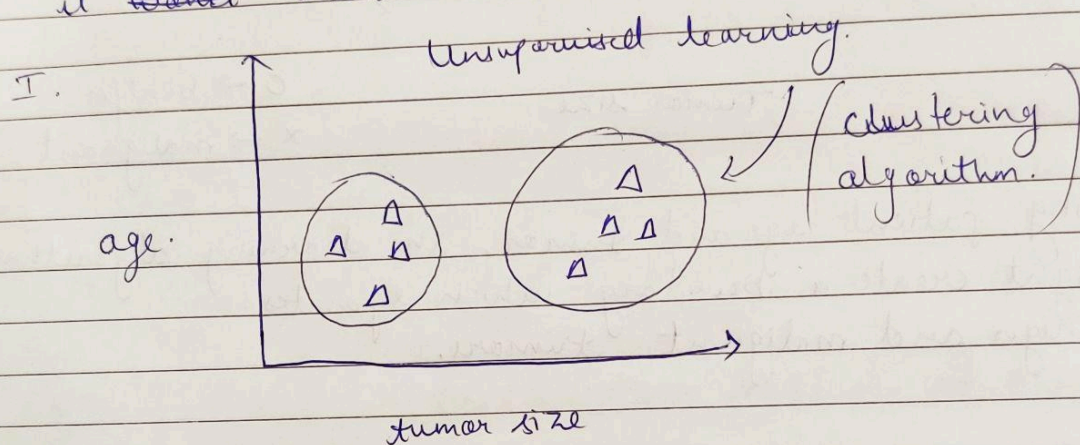 Unsupervised learning.
I.
(clustering
algorithm.)
age.
tumor size